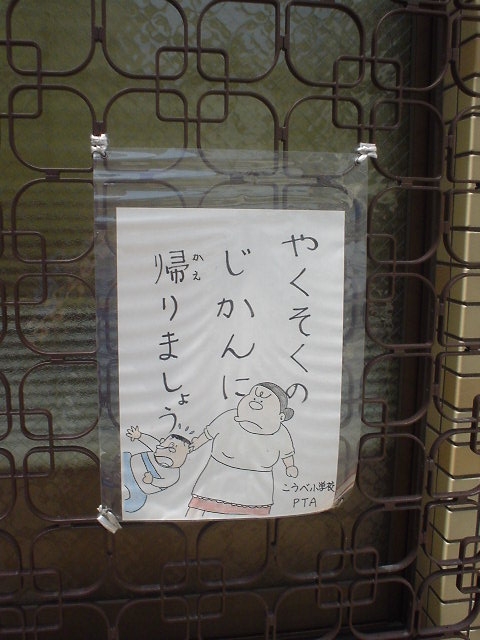 やくそくの
じかんに
帰りましょう
かえ
こうべ小学校
PTA